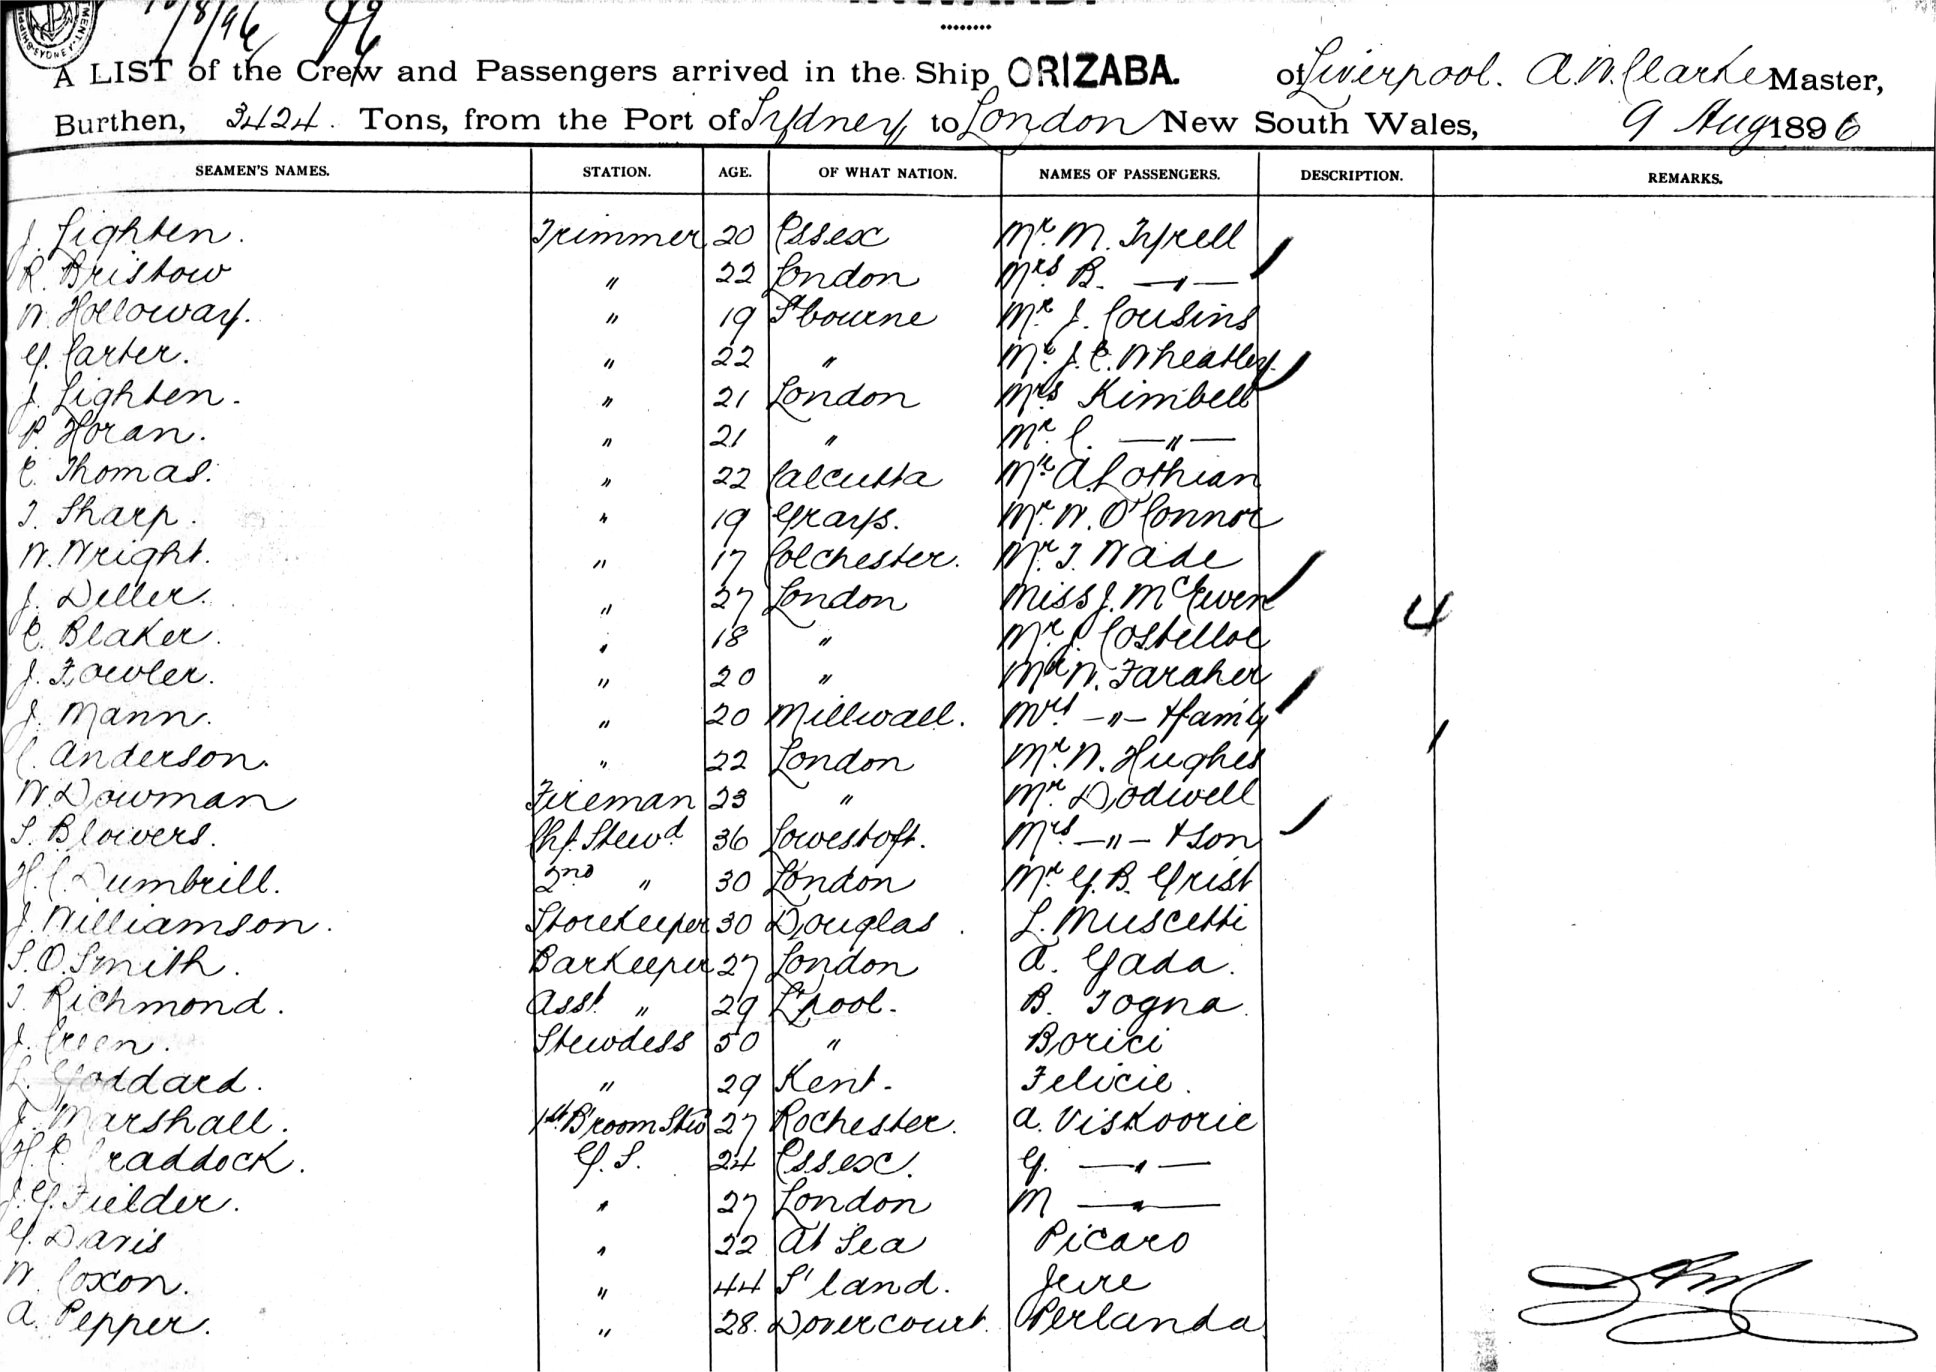 10/8/96
A LIST of the Crew and Passengers arrived in the Ship ORIZABA. of Liverpool. A. W. Clarke Master,
Burthen, 3424. Tons, from the Port of Sydney, to London New South Wales, 9 Aug 1896
SEAMEN'S NAMES. STATION. AGE. OF WHAT NATION. NAMES OF PASSENGERS. DESCRIPTION. REMARKS.
J. Lighten. Trimmer 20 Essex Mr. M. Tyrell
R. Bristow " 22 London Mrs B. —"—
W. Holloway. " 19 S'bourne Mr J. Cousins
G. Carter. " 22 " Mr. J. E. Wheatley.
J. Lighten. " 21 London Mrs Kimbell
P. Horan. " 21 " Mr. C. —"—
E. Thomas. " 22 Calcutta Mr A. Lothian
T. Sharp. " 19 Grays. Mr. W. O'Connor
W. Wright. " 17 Colchester. Mr. T. Wade
J. Deller. " 27 London Miss J. McEwen
E. Blaker. " 18 " Mr. J. Costelloe 4
J. Fowler. " 20 " Mr W. Faraher
J. Mann. " 20 Millwall. Mrs —"— & family
C. Anderson. " 22 London Mr. W. Hughes
W. Dowman Fireman 23 " Mr. Dodwell
S. Blowers. Chf. Stewd 36 Lowestoft. Mrs —"— & Son
H. C. Dumbrill. 2nd " 30 London Mr. G. B. Grist
J. Williamson. Storekeeper 30 Douglas. L. Muscetti
S. O. Smith. Barkeeper 27 London A. Gada.
T. Richmond. Asst. " 29 L'pool. B. Togna.
J. Creen. Stewdess 50 " Borici
L. Goddard. " 29 Kent. Felicie.
J. Marshall. 1st B'room Stwd 27 Rochester. A. Viskoorie
H. E. Craddock. G. S. 24 Essex. G. —"—
J. G. Fielder. " 27 London M —"—
G. Davis " 22 At Sea Picaro
W. Coxon. " 44 S'land. Jeire
A. Pepper. " 28. Dovercourt. Perlanda